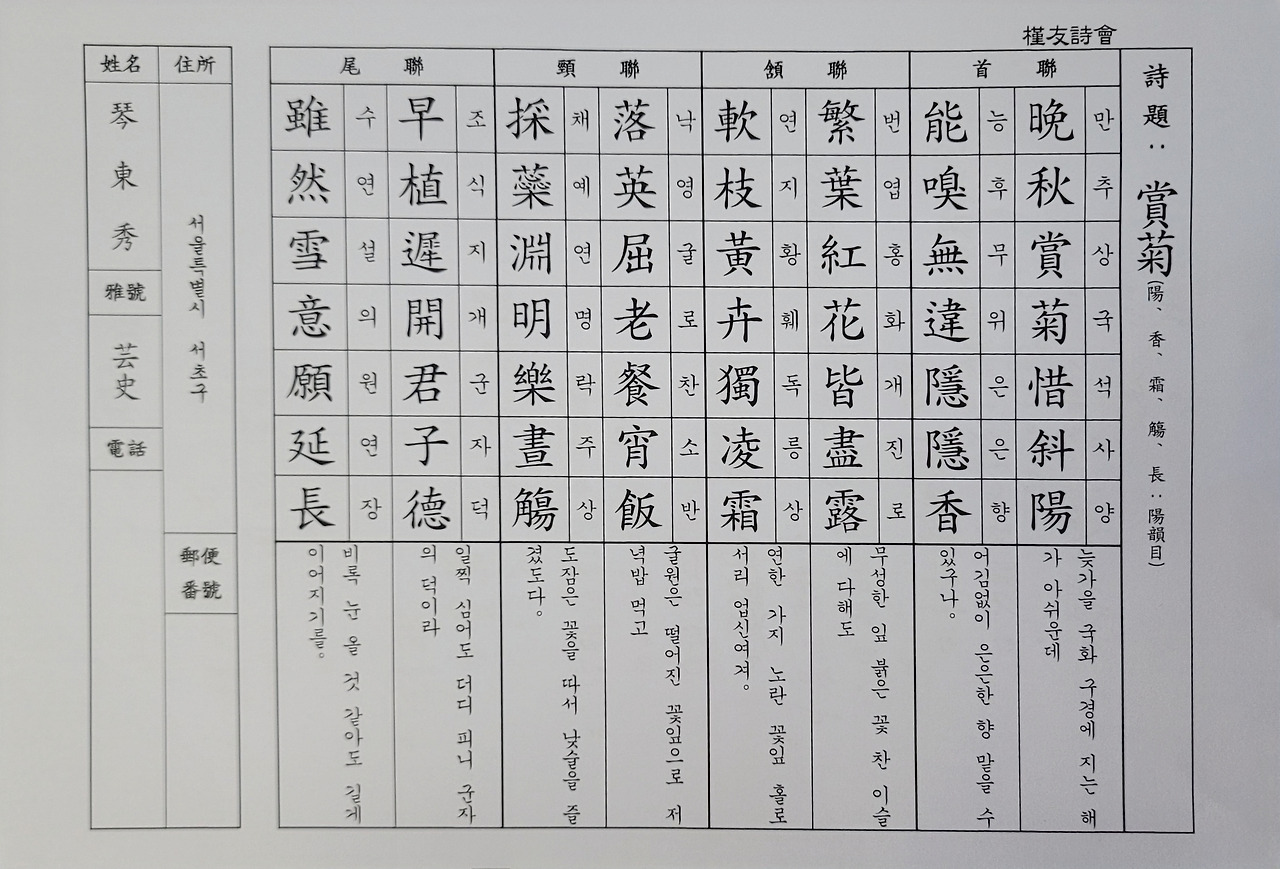 槿友詩會
詩題: 賞菊(陽、香、霜、觴、長:陽韻目)
首聯
晩秋賞菊惜斜陽
만추상국석사양
늦가을 국화 구경에 지는 해
가 아쉬운데
能嗅無違隱隱香
능후무위은은향
어김없이 은은한 향 맡을 수
있구나。
頷聯
繁葉紅花皆盡露
번엽홍화개진로
무성한 잎 붉은 꽃 찬 이슬
에 다해도
軟枝黃卉獨凌霜
연지황훼독릉상
연한 가지 노란 꽃잎 홀로
서리 업신여겨。
頸聯
落英屈老餐宵飯
낙영굴로찬소반
굴원은 떨어진 꽃잎으로 저
녁밥 먹고
採蘂淵明樂晝觴
채예연명락주상
도잠은 꽃을 따서 낮술을 즐
겼도다。
尾聯
早植遲開君子德
조식지개군자덕
일찍 심어도 더디 피니 군자
의 덕이라
雖然雪意願延長
수연설의원연장
비록 눈 올 것 같아도 길게
이어지기를。
住所
서울특별시 서초구
郵便
番號
姓名
琴東秀
雅號
芸史
電話